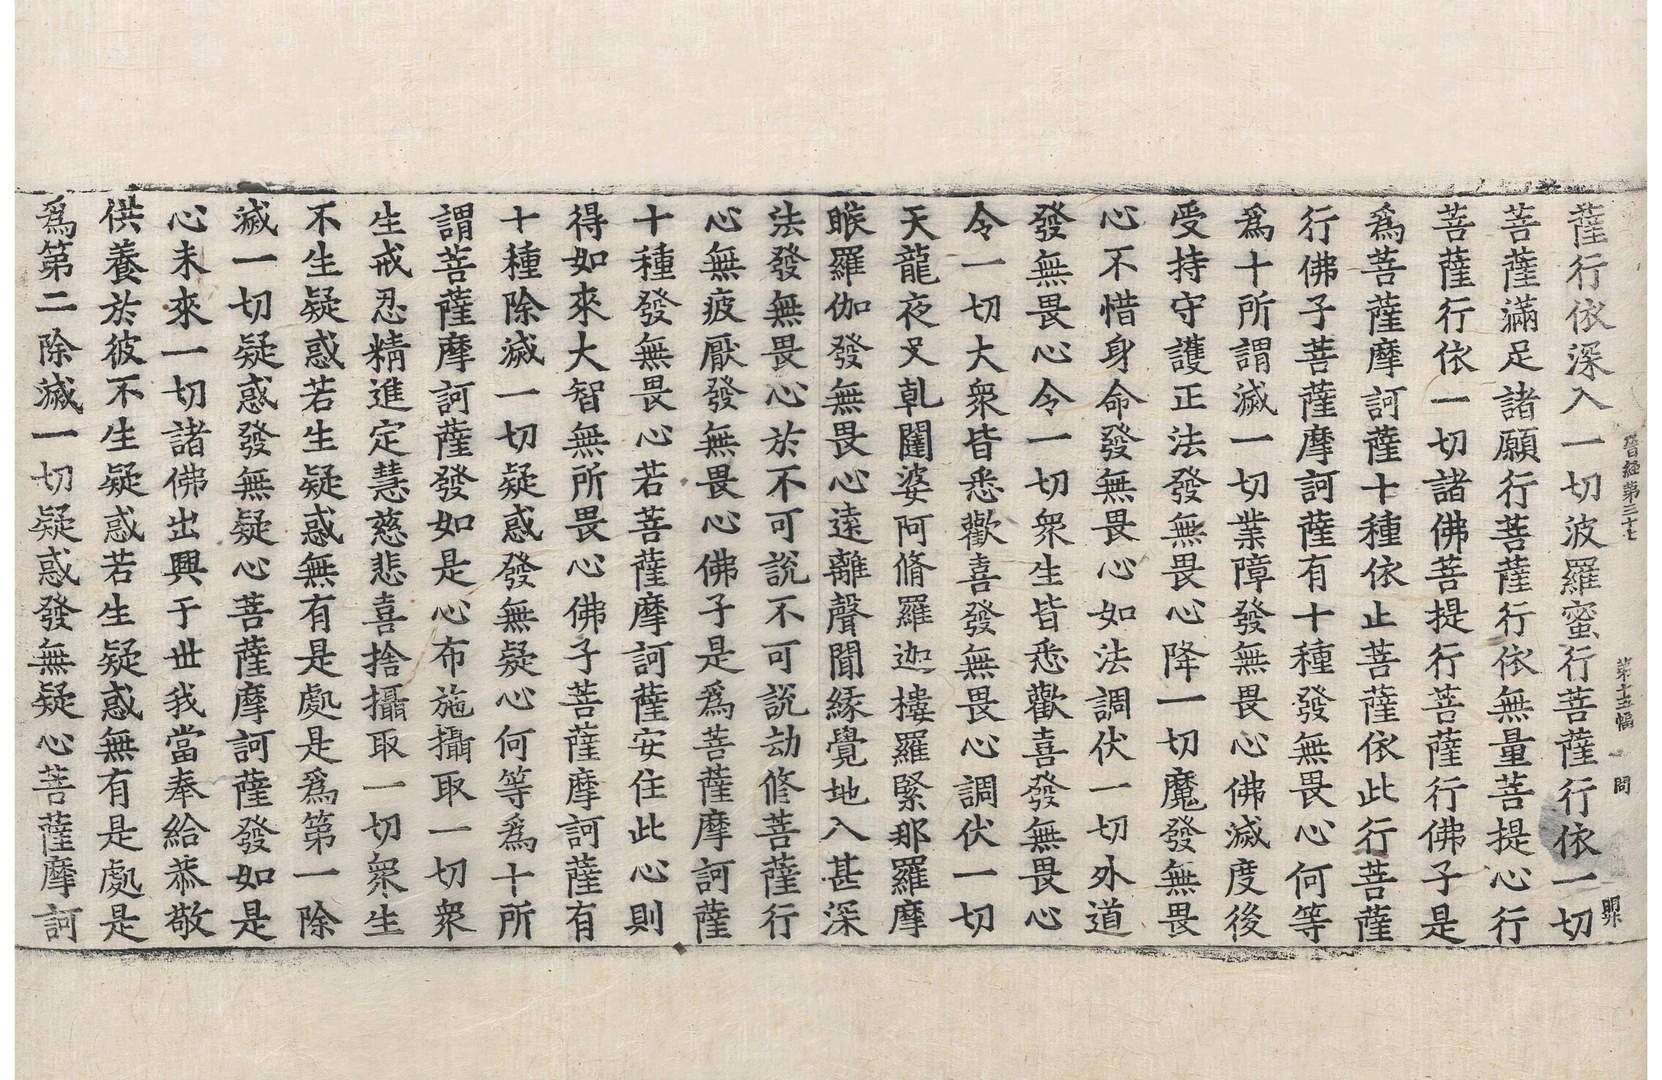 晉經第三十七 第十五幅 問
薩行依深入一切波羅蜜行菩薩行依一切
菩薩滿足諸願行菩薩行依無量菩提心行
菩薩行依一切諸佛菩提行菩薩行佛子是
爲菩薩摩訶薩十種依止菩薩依此行菩薩
行佛子菩薩摩訶薩有十種發無畏心何等
爲十所謂滅一切業障發無畏心佛滅度後
受持守護正法發無畏心降一切魔發無畏
心不惜身命發無畏心如法調伏一切外道
發無畏心令一切衆生皆悉歡喜發無畏心
令一切大衆皆悉歡喜發無畏心調伏一切
天龍夜叉乹闥婆阿脩羅迦樓羅緊那羅摩
睺羅伽發無畏心遠離聲聞緣覺地入甚深
法發無畏心於不可說不可說劫修菩薩行
心無疲厭發無畏心佛子是爲菩薩摩訶薩
十種發無畏心若菩薩摩訶薩安住此心則
得如來大智無所畏心佛子菩薩摩訶薩有
十種除滅一切疑惑發無疑心何等爲十所
謂菩薩摩訶薩發如是心布施攝取一切衆
生戒忍精進定慧慈悲喜捨攝取一切衆生
不生疑惑若生疑惑無有是處是爲第一除
滅一切疑惑發無疑心菩薩摩訶薩發如是
心未來一切諸佛出興于世我當奉給恭敬
供養於彼不生疑惑若生疑惑無有是處是
爲第二除滅一切疑惑發無疑心菩薩摩訶